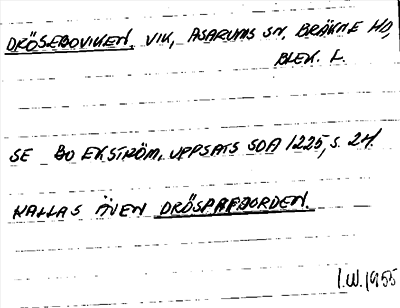 DRÖSEBOVIKEN, VIK, ASARUMS SN, BRÄKNE HD,
BLEK. L.
SE BO EKSTRÖM, UPPSATS SOA 1225, S. 24.
KALLAS ÄVEN
I.W. 1955